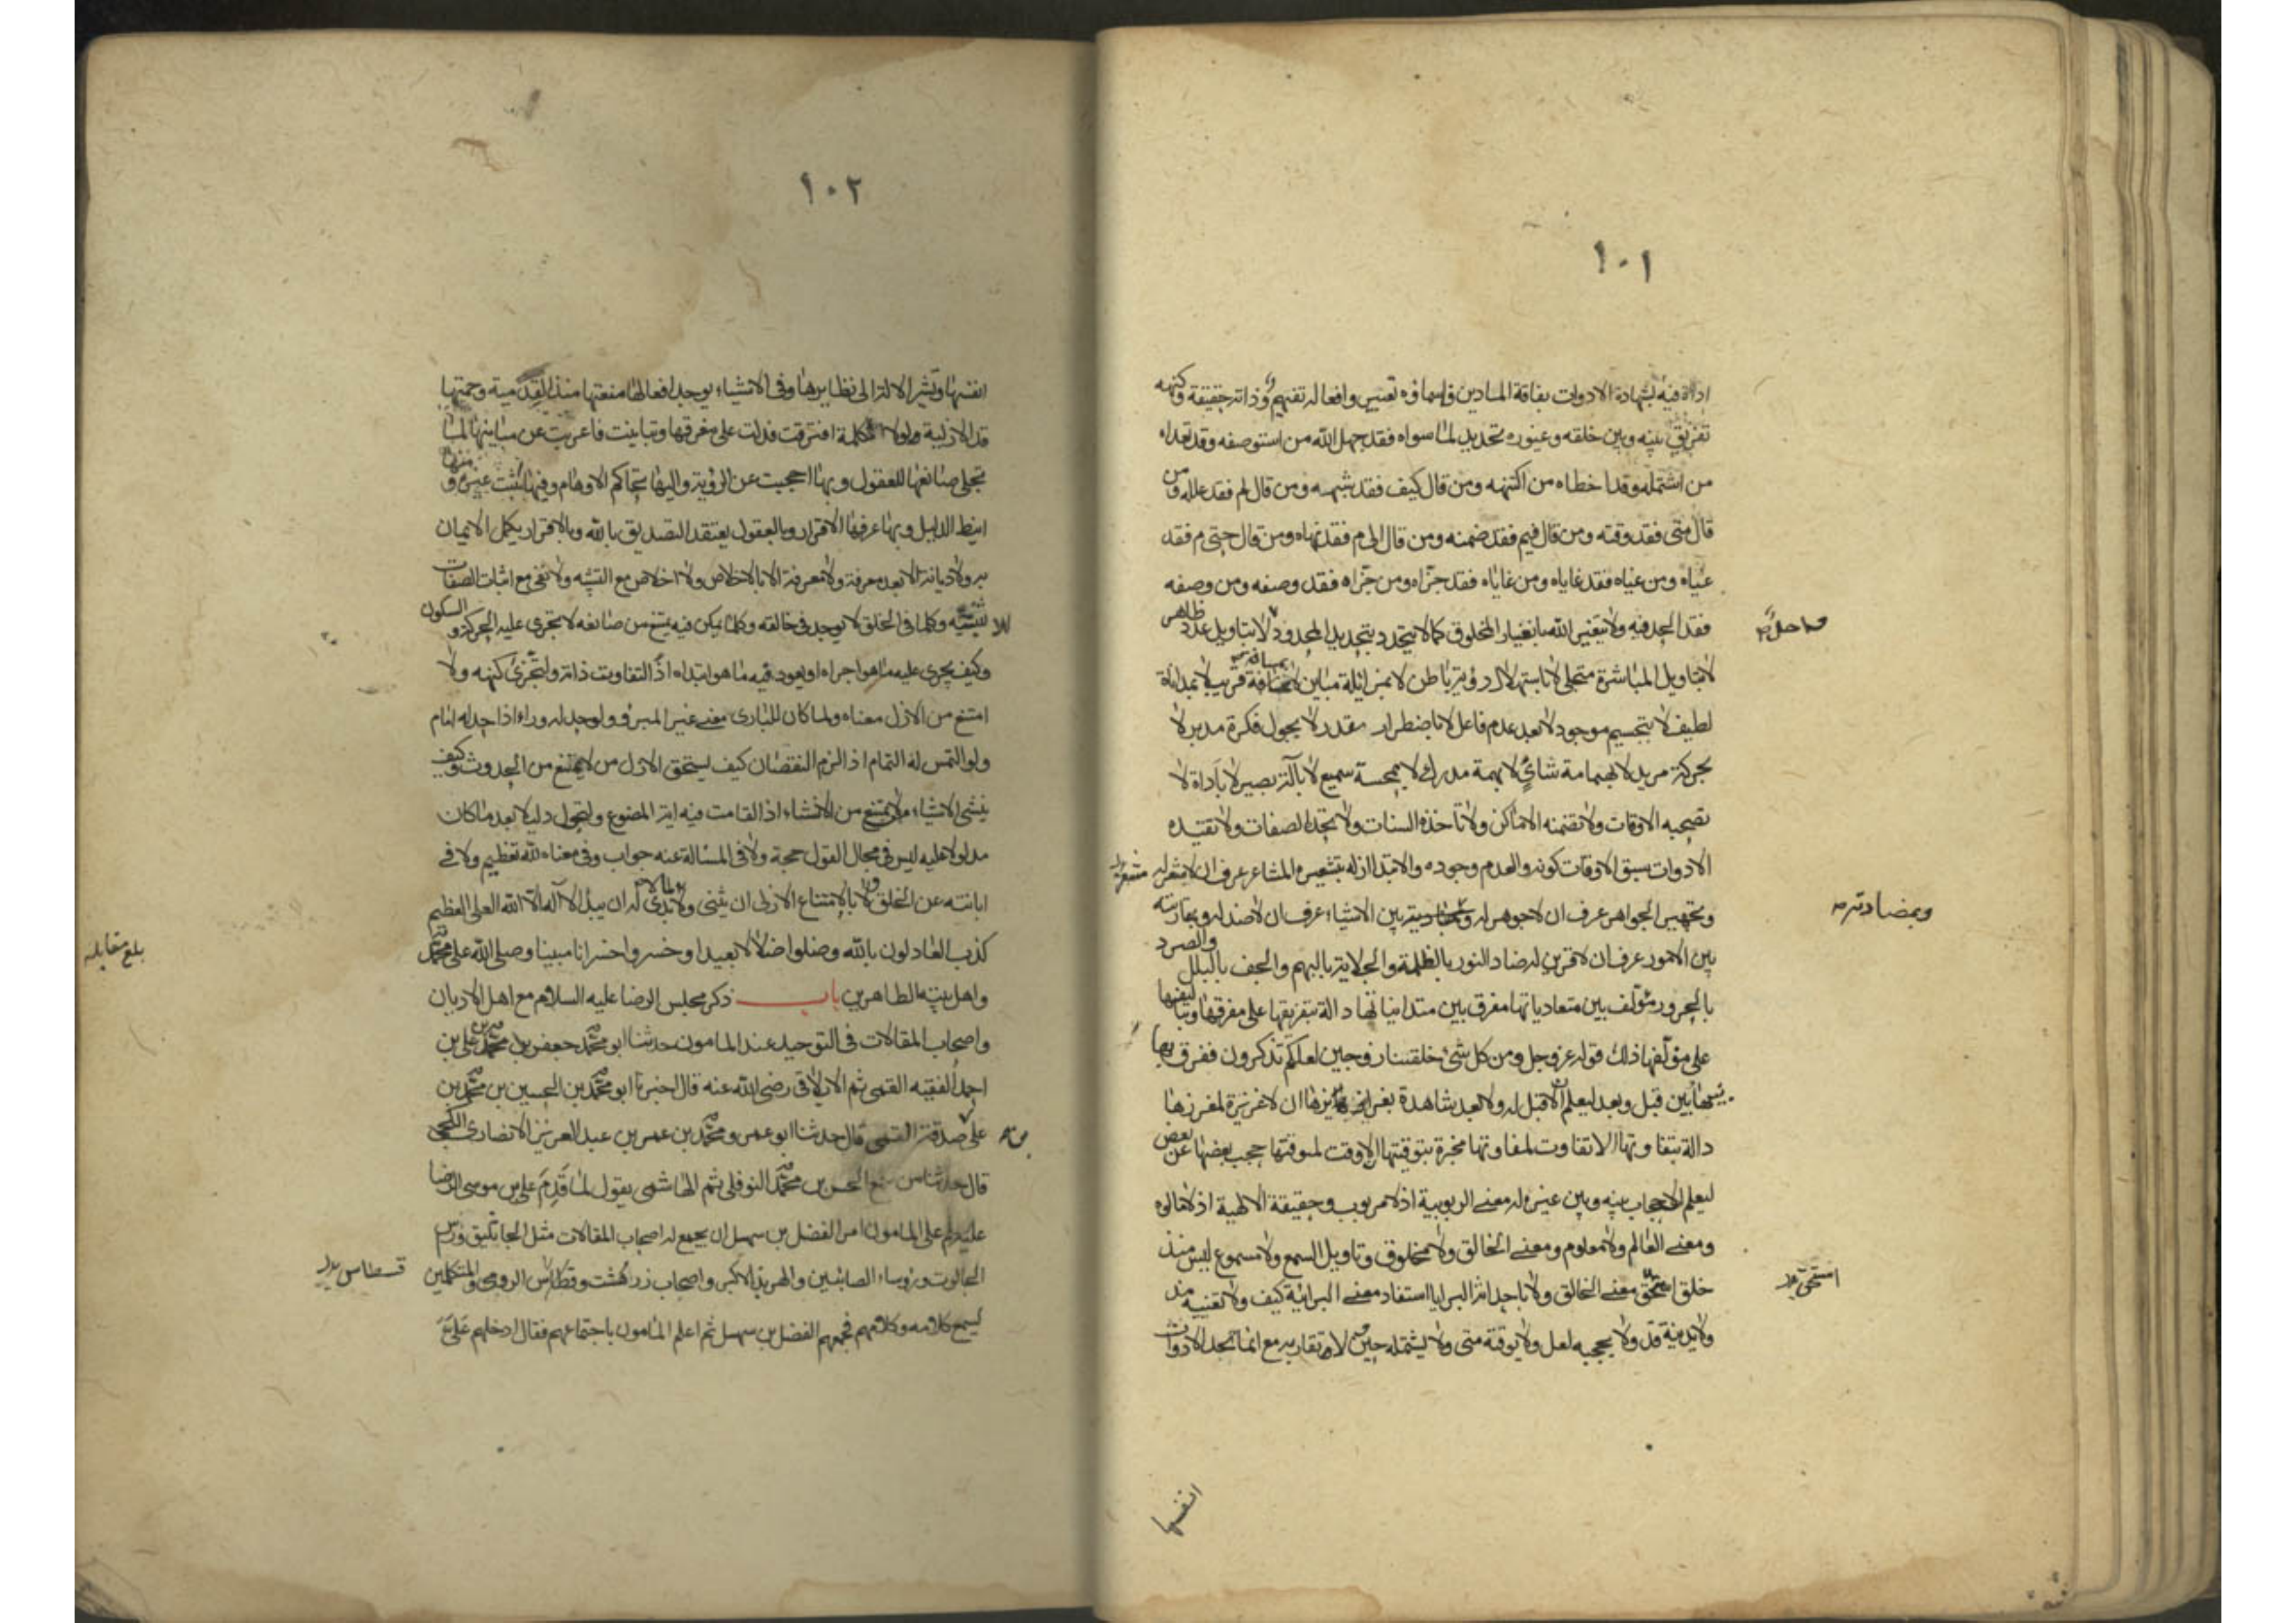 ١٠١
اداة فيه لشهادة الادوات بفاقة المادين واسماؤه تعبير وافعاله تفهيم وذاته حقيقة وكنهه
تفريق بينه وبين خلقه وغيوره تحديد لما سواه فقد جهل الله من استوصفه وقد تعداه
من اشتمله وقد اخطاه من اكتنهه ومن قال كيف فقد شبهه ومن قال لم فقد علله ومن
قال متى فقد وقته ومن قال فيم فقد ضمنه ومن قال الى م فقد نهاه ومن قال حتى م فقد
غياه ومن غياه فقد غاياه ومن غاياه فقد جزاه ومن جزاه فقد وصفه ومن وصفه
فقد الحد فيه ولا يتغير الله بانغيار المخلوق كما لا يتحدد بتحديد المحدود لا بتاويل عدد ظاهر
لا بتاويل المباشرة متجلى لا باستهلال رؤية باطن لا بمزايلة مباين لا بمسافة قريب لا بمداناة
لطيف لا بتجسيم موجود لا بعد عدم فاعل لا باضطرار مقدر لا بجول فكرة مدبر لا
بحركة مريد لا بهمامة شائ لا بهمة مدرك لا بمجسة سميع لا بآلة بصير لا باداة لا
تصحبه الاوقات ولا تضمنه الاماكن ولا تاخذه السنات ولا تحده الصفات ولا تقيده
الادوات سبق الاوقات كونه والعدم وجوده والابتدا ازله بتشعيره المشاعر عرف ان لا مشعر له
وتجهيره الجواهر عرف ان لا جوهر له وبمضادته بين الاشياء عرف ان لا ضد له وبمقارنته
ومضادته
بين الامور عرف ان لا قرين له ضاد النور بالظلمة والجلاية بالبهم والجف بالبلل والصرد
بالحرور مؤلف بين متعادياتها مفرق بين متدانياتها دالة بتفريقها على مفرقها وبتاليفها
على مؤلفها ذلك قوله عز وجل ومن كل شئ خلقنا زوجين لعلكم تذكرون ففرق بها
بين قبل وبعد ليعلم ان لا قبل له ولا بعد شاهدة بغرايزها ان لا غريزة لمغرزها
دالة بتفاوتها ان لا تفاوت لمفاوتها مخبرة بتوقيتها ان لا وقت لموقتها حجب بعضها عن بعض
ليعلم ان لا حجاب بينه وبين غيره له معنى الربوبية اذ لا مربوب وحقيقة الالهية اذ لا مالوه
ومعنى العالم ولا معلوم ومعنى الخالق ولا مخلوق وتاويل السمع ولا مسموع ليس منذ
خلق استحق معنى الخالق ولا باحداثه البرايا استفاد معنى البرائية كيف ولا تغيبه مذ
استحق
ولا تدنيه قد ولا يحجبه لعل ولا يوقته متى ولا يشتمله حين ولا تقارنه مع انما تحد الادوات
انفسها
١٠٢
انفسها وتشير الالة الى نظايرها وفي الاشياء يوجد افعالها منعتها منذ القدمية وحمتها
قد الازلية ولولا الكلمة افترقت فدلت على مفرقها وتباينت فاعربت عن مباينها لما
تجلى صانعها للعقول وبها احتجب عن الرؤية واليها تحاكم الاوهام وفيها اثبت غيره ومنها
انيط الدليل وبها عرفها الاقرار وبالعقول يعتقد التصديق بالله وبالاقرار يكمل الايمان
به ولا ديانة الا بعد معرفة ولا معرفة الا بالاخلاص ولا اخلاص مع التشبيه ولا نفى مع اثبات الصفات
للتشبيه وكلما في الخلق لا يوجد في خالقه وكلما يمكن فيه يمتنع من صانعه لا تجرى عليه الحركة والسكون
وكيف يجرى عليه ما هو اجراه او يعود فيه ما هو ابتداه اذا لتفاوتت ذاته ولتجزئ كنهه ولا
امتنع من الازل معناه ولما كان للبارى معنى غير المبرؤ ولو حد له وراء اذا حد له امام
ولو التمس له التمام اذا لزمه النقصان كيف يستحق الازل من لا يمتنع من الحدوث وكيف
ينشى الاشياء من لا يمتنع من الانشاء اذا لقامت فيه اية المصنوع ولتحول دليلا بعد ما كان
مدلولا عليه ليس في مجال القول حجة ولا في المسالة عنه جواب ولا في معناه لله تعظيم ولا في
ابانته عن الخلق ضيم الا بامتناع الازلى ان يثنى ولا بدئ له ان يبدأ لا اله الا الله العلى العظيم
كذب العادلون بالله وضلوا ضلالا بعيدا وخسروا خسرانا مبينا وصلى الله على محمد
بلغ مقابله
واهل بيته الطاهرين باب ذكر مجلس الرضا عليه السلام مع اهل الاديان
واصحاب المقالات في التوحيد عند المامون حدثنا ابو محمد جعفر بن محمد بن على بن
احمد الفقيه القمى ثم الايلاقى رضى الله عنه قال اخبرنا ابو محمد بن الحسين بن محمد بن
على صدقة القمى قال حدثنا ابو عمرو محمد بن عمر بن عبد العزيز الانصارى الكجى
قال حدثنا من سمع الحسن بن محمد النوفلى ثم الهاشمى يقول لما قدم على بن موسى الرضا
عليه السلام على المامون امر الفضل بن سهل ان يجمع له اصحاب المقالات مثل الجاثليق وراس
الجالوت ورؤساء الصابئين والهربذ الاكبر واصحاب زردهشت وقسطاس الرومى والمتكلمين
قسطاس
ليسمع كلامه وكلامهم فجمعهم الفضل بن سهل ثم اعلم المامون باجتماعهم فقال ادخلهم على